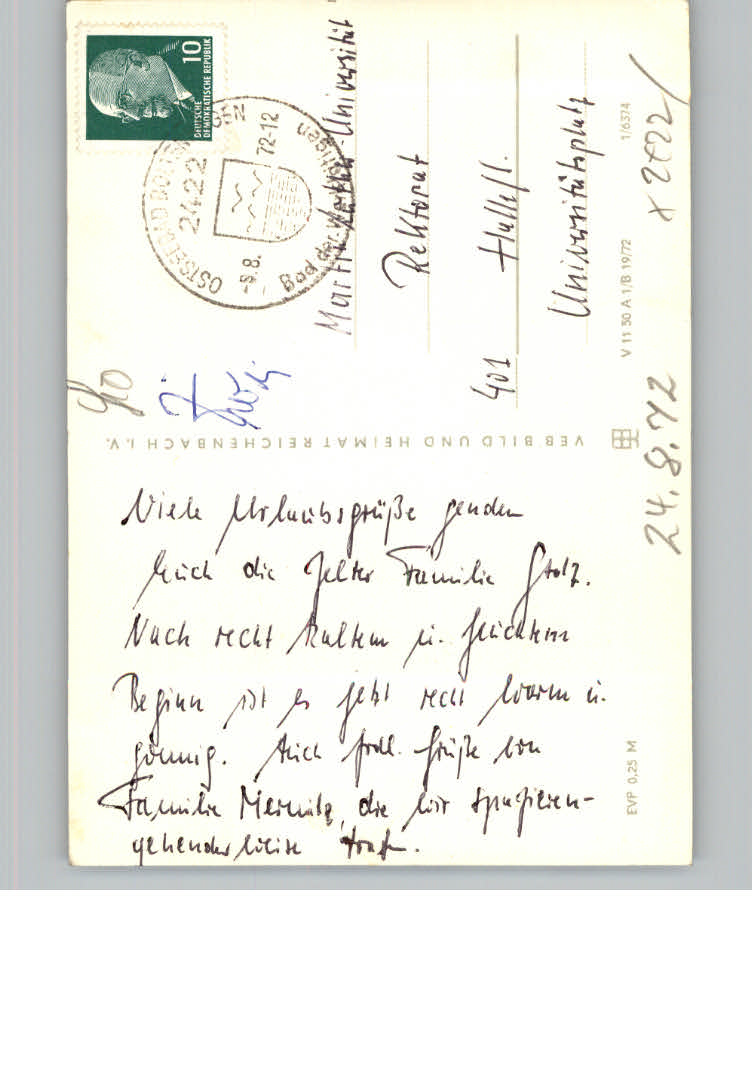 10
DEUTSCHE
DEMOKRATISCHE REPUBLIK
OSTSEEBAD
2422
-9.8. 72-12
Bad der Werktätigen
Martin-Luther-Universität
Rektorat
401 Halle/S.
Universitätsplatz
1/6374
V 11 50 A 1/B 19/72
VEB BILD UND HEIMAT REICHENBACH I.V.
x 2022/
24.8.72
Viele Urlaubsgrüße senden
Euch die Zelter Familie Stolz.
Nach recht kaltem u. feuchtem
Beginn ist es jetzt recht warm u.
sonnig. Auch frdl. Grüße von
Familie die wir spazieren-
gehenderweise trafen.
EVP 0,25 M